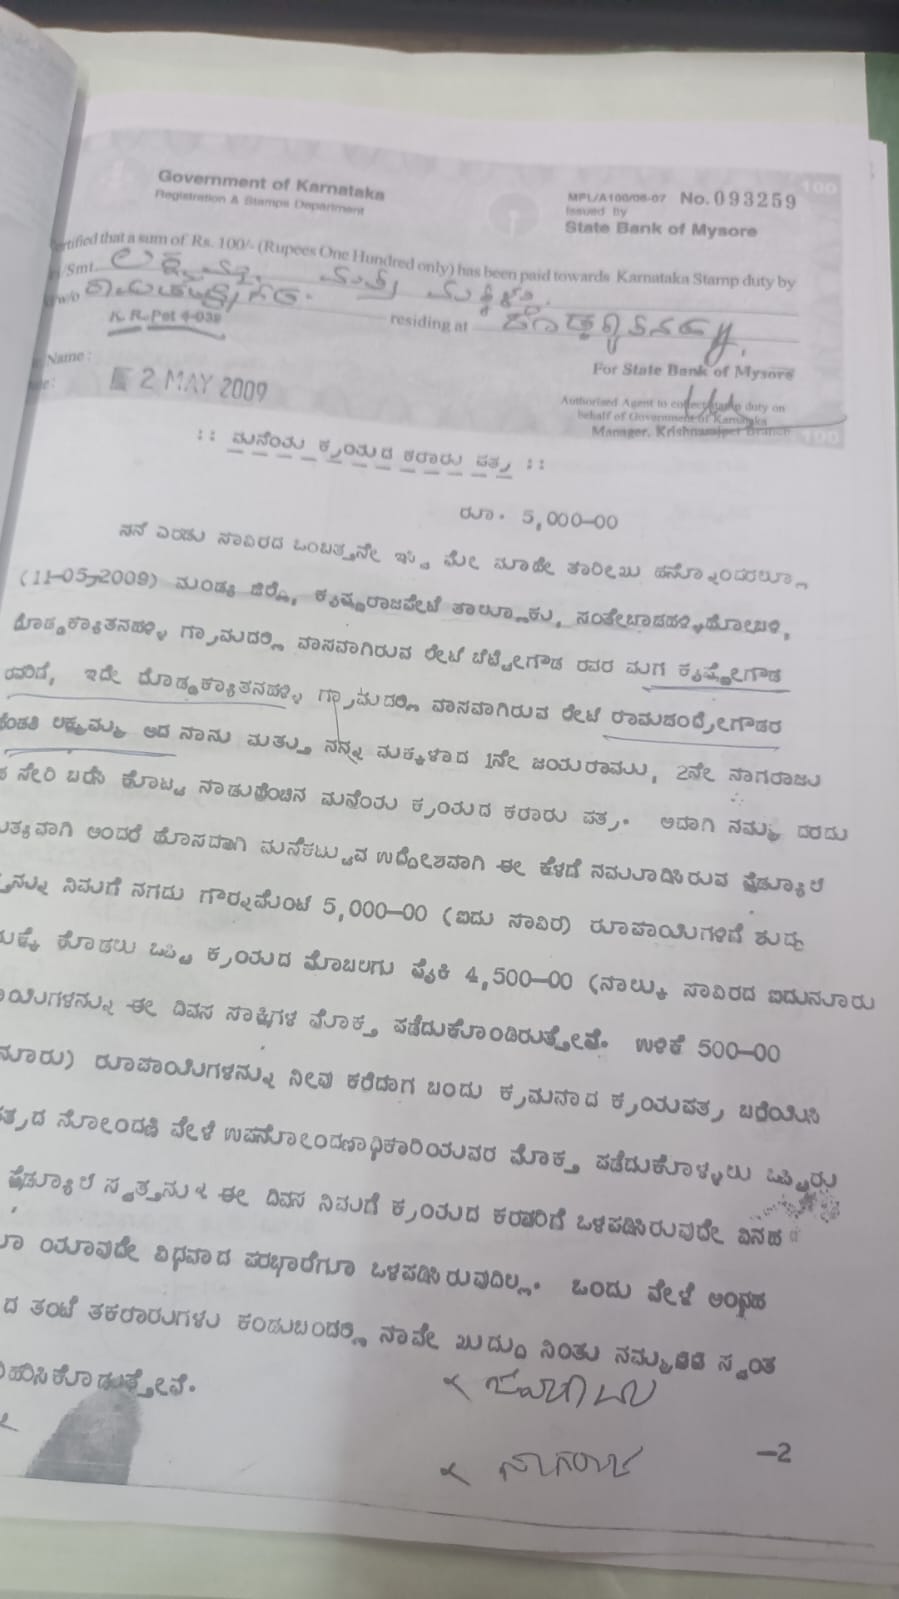 Government of Karnataka
Registration & Stamps Department
MPL/A100/06-07 No. 093259
Issued by
State Bank of Mysore
100
ertified that a sum of Rs. 100/- (Rupees One Hundred only) has been paid towards Karnataka Stamp duty by
/Smt. ಲಕ್ಷ್ಮಮ್ಮ ಮತ್ತು ಮಕ್ಕಳು
w/o ರಾಮಚಂದ್ರೇಗೌಡ residing at
K. R. Pet 4-038
Name :
For State Bank of Mysore
2 MAY 2009
Authorised Agent to collect stamp duty on
behalf of Government of Karnataka
Manager, Krishnarajpet Branch
100
:: ಮನೆಯ ಕ್ರಯದ ಕರಾರು ಪತ್ರ ::
ರೂ. 5,000-00
ಸನೆ ಎರಡು ಸಾವಿರದ ಒಂಬತ್ತನೇ ಇಸ್ವಿ ಮೇ ಮಾಹೇ ತಾರೀಖು ಹನ್ನೊಂದರಲ್ಲೂ
(11-05-2009) ಮಂಡ್ಯ ಜಿಲ್ಲೆ, ಕೃಷ್ಣರಾಜಪೇಟೆ ತಾಲ್ಲೂಕು, ಸಂತೇಬಾಚಹಳ್ಳಿ ಹೋಬಳಿ,
ದೊಡ್ಡಕ್ಯಾತನಹಳ್ಳಿ ಗ್ರಾಮದಲ್ಲಿ ವಾಸವಾಗಿರುವ ಲೇಟ್ ಬೆಟ್ಟೇಗೌಡ ರವರ ಮಗ ಕೃಷ್ಣೇಗೌಡ
ರವರಿಗೆ, ಇದೇ ದೊಡ್ಡಕ್ಯಾತನಹಳ್ಳಿ ಗ್ರಾಮದಲ್ಲಿ ವಾಸವಾಗಿರುವ ಲೇಟ್ ರಾಮಚಂದ್ರೇಗೌಡರ
ಹೆಂಡತಿ ಲಕ್ಷ್ಮಮ್ಮ ಆದ ನಾನು ಮತ್ತು ನನ್ನ ಮಕ್ಕಳಾದ 1ನೇ ಜಯರಾಮು, 2ನೇ ನಾಗರಾಜು
ಸೇರಿ ಬರೆಸಿ ಕೊಟ್ಟ ನಾಡುಹೆಂಚಿನ ಮನೆಯ ಕ್ರಯದ ಕರಾರು ಪತ್ರ. ಅದಾಗಿ ನಮ್ಮ ದರದು
ತ್ಯವಾಗಿ ಅಂದರೆ ಹೊಸದಾಗಿ ಮನೆಕಟ್ಟುವ ಉದ್ದೇಶವಾಗಿ ಈ ಕೆಳಗೆ ನಮೂದಿಸಿರುವ ಷೆಡ್ಯೂಲ್
ತನ್ನು ನಿಮಗೆ ನಗದು ಗೌರ್ನಮೆಂಟ್ 5,000-00 (ಐದು ಸಾವಿರ) ರೂಪಾಯಿಗಳಿಗೆ ಶುದ್ಧ
ಯಕ್ಕೆ ಕೊಡಲು ಒಪ್ಪಿ ಕ್ರಯದ ಮೊಬಲಗು ಪೈಕಿ 4,500-00 (ನಾಲ್ಕು ಸಾವಿರದ ಐದುನೂರು
ಯಿಗಳನ್ನು ಈ ದಿವಸ ಸಾಕ್ಷಿಗಳ ಮೊಕ್ತ ಪಡೆದುಕೊಂಡಿರುತ್ತೇವೆ. ಉಳಿಕೆ 500-00
ನೂರು) ರೂಪಾಯಿಗಳನ್ನು ನೀವು ಕರೆದಾಗ ಬಂದು ಕ್ರಮವಾದ ಕ್ರಯಪತ್ರ ಬರೆಯಿಸಿ
ತ್ರದ ನೋಂದಣಿ ವೇಳೆ ಉಪನೋಂದಣಾಧಿಕಾರಿಯವರ ಮೊಕ್ತ ಪಡೆದುಕೊಳ್ಳಲು ಒಪ್ಪಿರು
ಷೆಡ್ಯೂಲ್ ಸ್ವತ್ತನ್ನು ಈ ದಿವಸ ನಿಮಗೆ ಕ್ರಯದ ಕರಾರಿಗೆ ಒಳಪಡಿಸಿರುವುದೇ ವಿನಹ
ಯಾವುದೇ ವಿಧವಾದ ಪರಭಾರೆಗೂ ಒಳಪಡಿಸಿರುವುದಿಲ್ಲ. ಒಂದು ವೇಳೆ ಆಗ್ಯೂ
ದ ತಂಟೆ ತಕರಾರುಗಳು ಕಂಡುಬಂದಲ್ಲಿ ನಾವೇ ಖುದ್ದು ನಿಂತು ನಮ್ಮ ಸ್ವಂತ
ಹರಿಸಿಕೊಡುತ್ತೇವೆ.
× ಜಯರಾಮು
× ನಾಗರಾಜ
-2